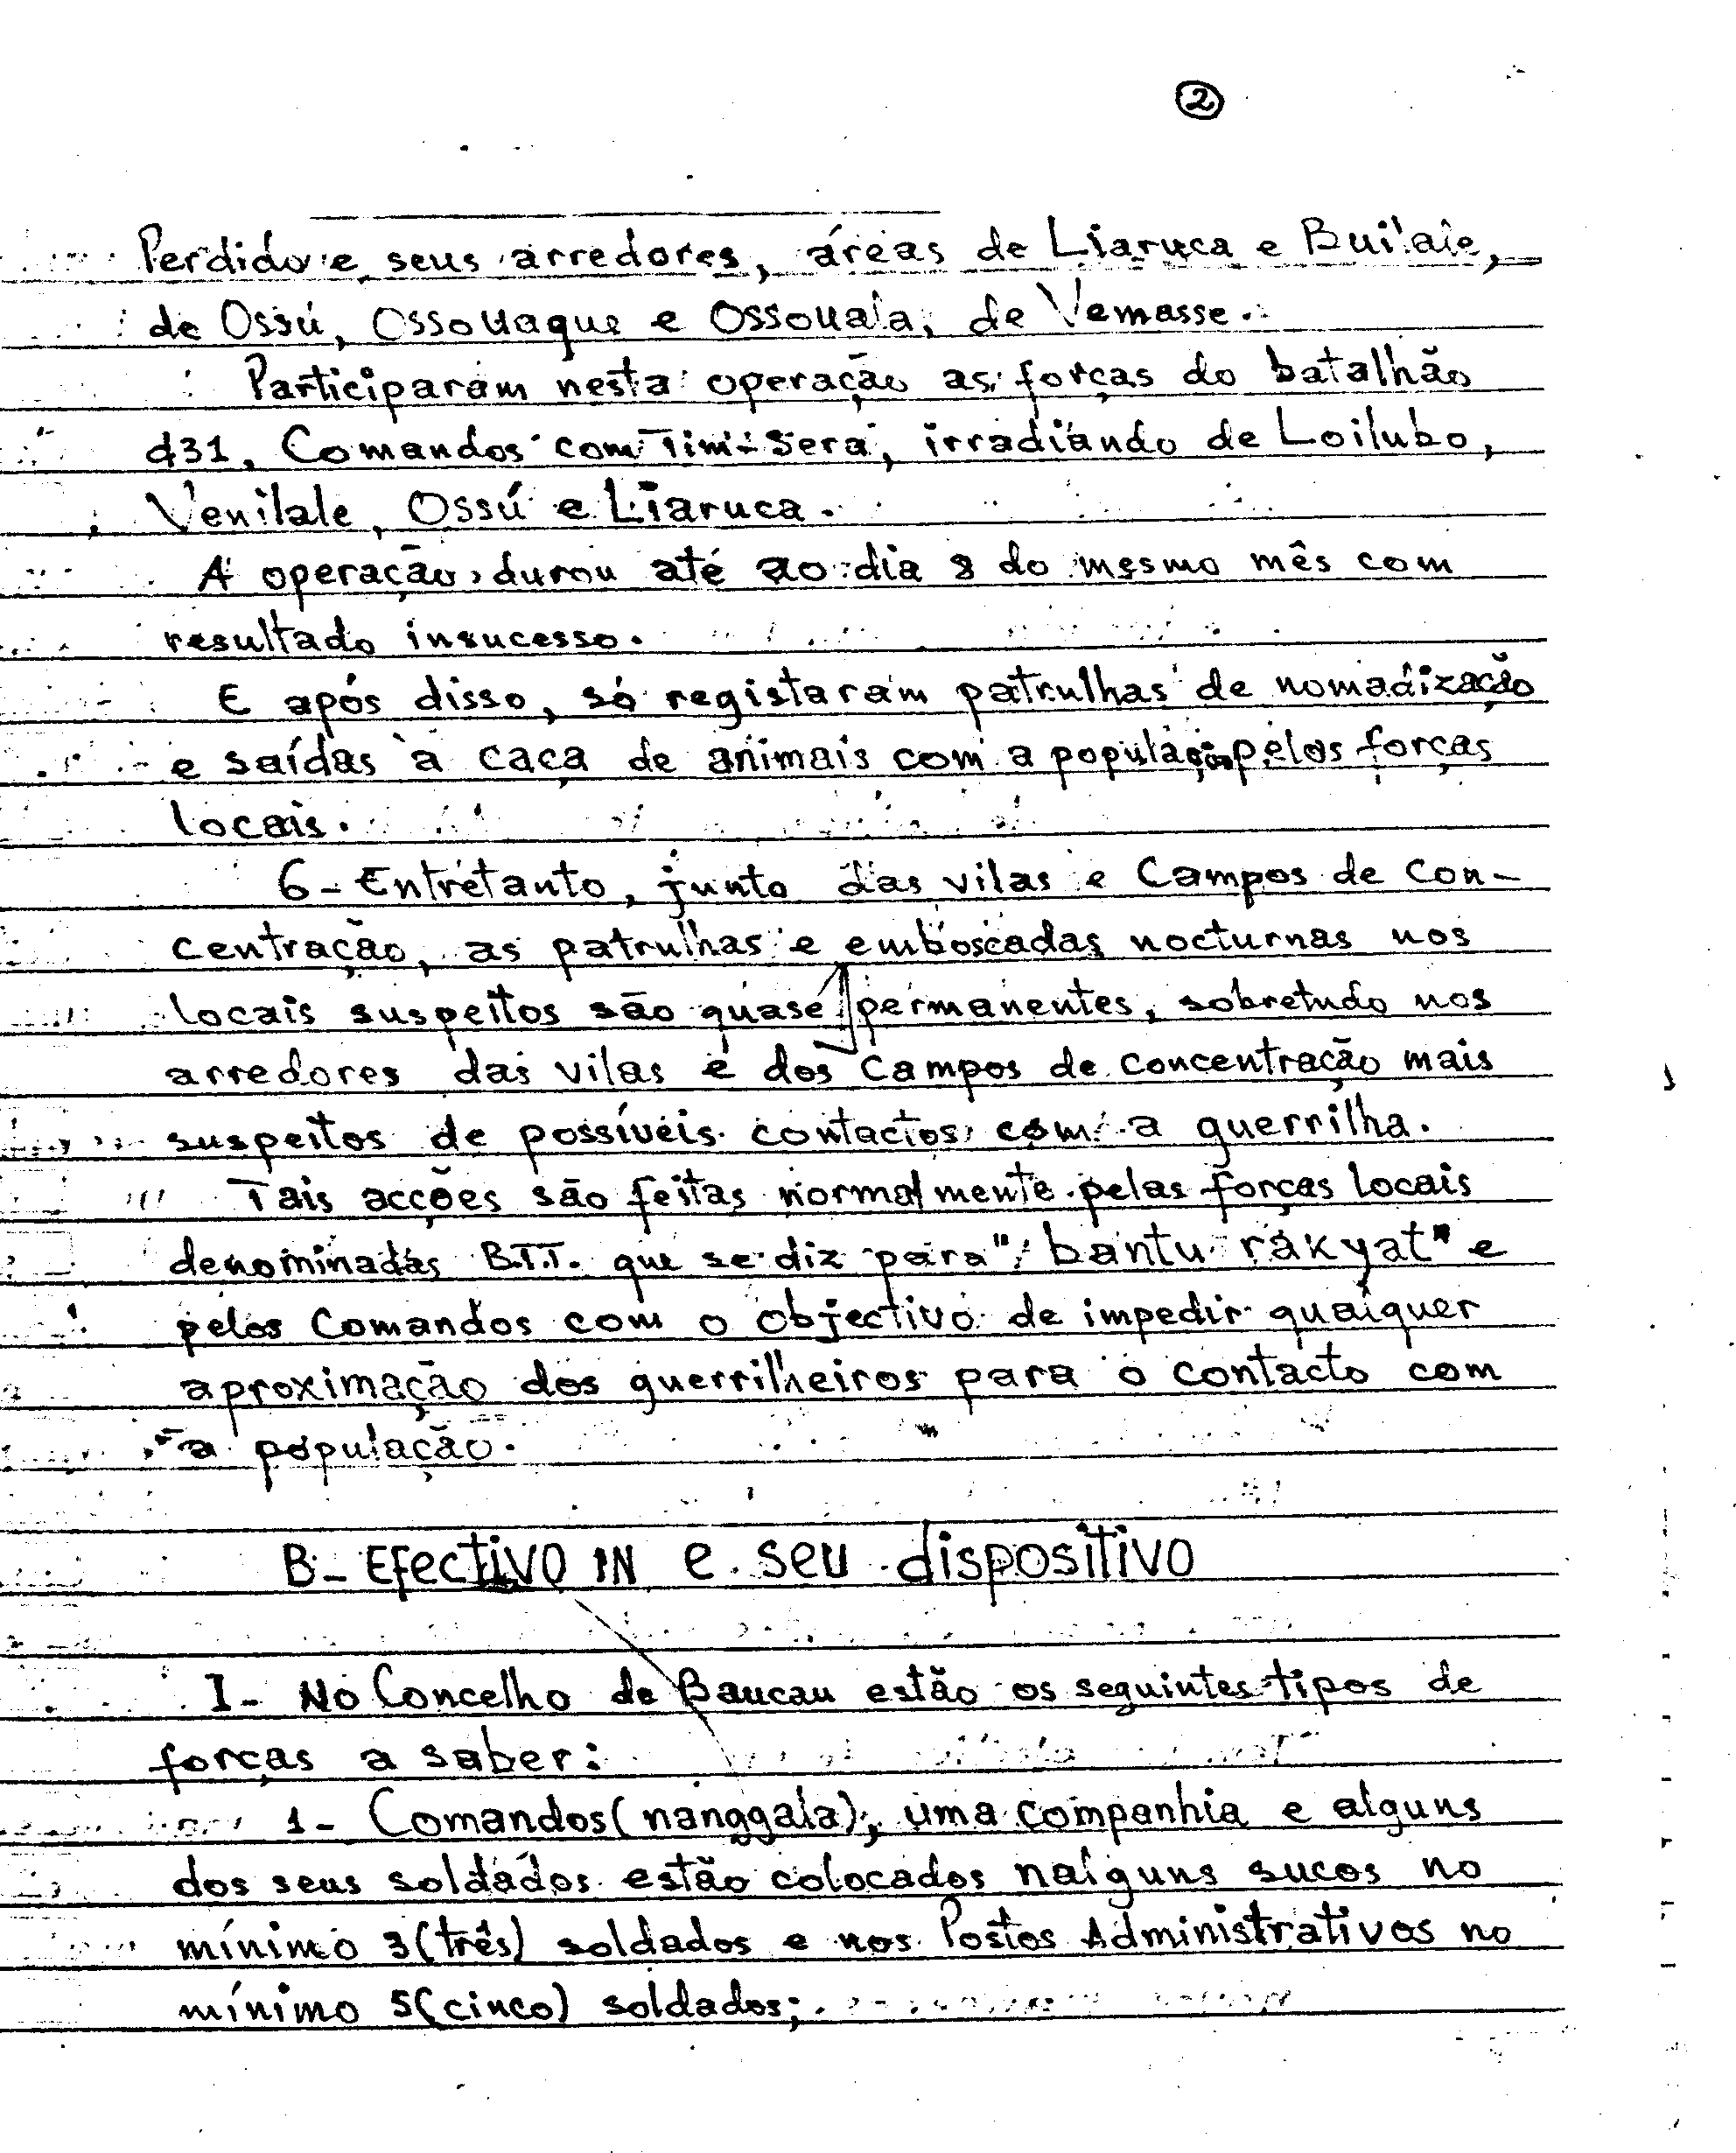 2
Perdido e seus arredores, áreas de Liaruca e Builale,
de Ossú, Ossouaque e Ossouala, de Vemasse.
Participaram nesta operação as forças do batalhão
431, Comandos com Tim-Sera, irradiando de Loilubo,
Venilale, Ossú e Liaruca.
A operação durou até ao dia 8 do mesmo mês com
resultado insucesso.
E após disso, só registaram patrulhas de nomadização
e saídas à caça de animais com a população pelos forças
locais.
6 - Entretanto, junto das vilas e Campos de Con-
centração, as patrulhas e emboscadas nocturnas nos
locais suspeitos são quase permanentes, sobretudo nos
arredores das vilas e dos Campos de concentração mais
suspeitos de possíveis contactos com a guerrilha.
Tais acções são feitas normalmente pelas forças locais
denominadas B.T.T. que se diz para "bantu rakyat" e
pelos Comandos com o objectivo de impedir qualquer
aproximação dos guerrilheiros para o contacto com
a população.
B - Efectivo IN e seu dispositivo
I - No Concelho de Baucau estão os seguintes tipos de
forças a saber:
1 - Comandos (nanggala), uma companhia e alguns
dos seus soldados estão colocados nalguns sucos no
mínimo 3 (três) soldados e nos Postos Administrativos no
mínimo 5 (cinco) soldados;